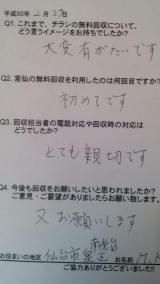 平成30年 2月 27日
Q1.これまで、チラシの無料回収について、
どう言うイメージをお持ちでしたか?
大変有がたいです
Q2.宮仙の無料回収を利用したのは何回目ですか?
初めてです
Q3.回収担当者の電話対応や回収時の対応は
どうでしたか?
とても親切です
Q4.今後も回収をお願いしたいと思われましたか?
ご意見・ご要望がありましたらお願い致します。
又お願いします
お住まいの地区 仙台市泉区
お名前 M.K
ご協力ありがとうございました!!